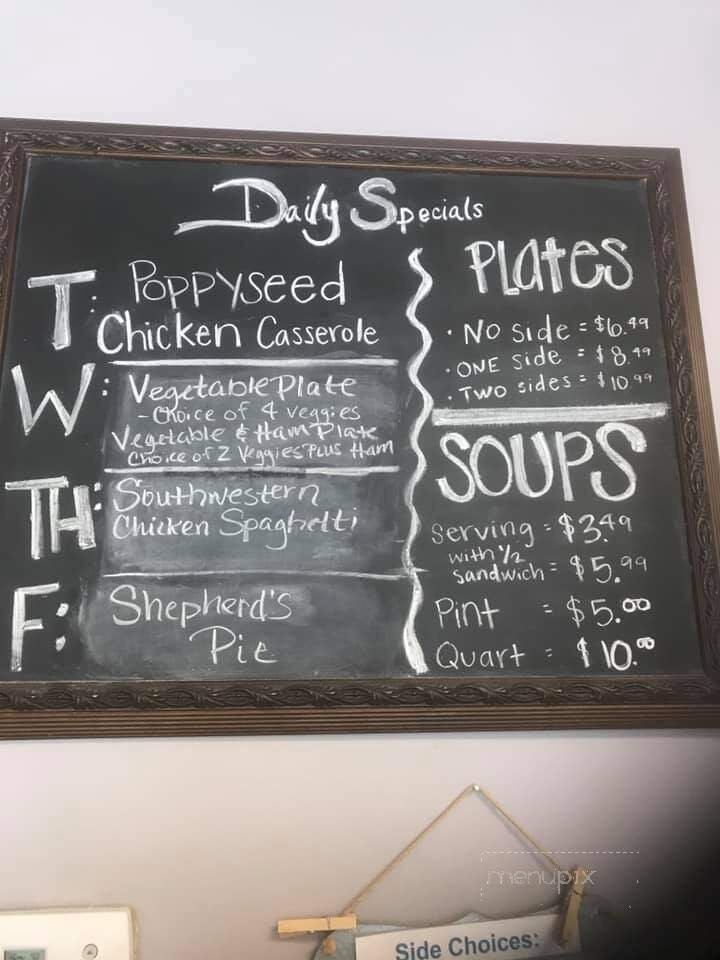 Daily Specials
T: Poppyseed
Chicken Casserole
W: Vegetable Plate
- Choice of 4 veggies
Vegetable & Ham Plate
Choice of 2 Veggies Plus Ham
TH: Southwestern
Chicken Spaghetti
F: Shepherd's
Pie
PLates
· No side = $6.49
· ONE side = $8.49
· TWO sides = $10.99
SOUPS
Serving = $3.49
with 1/2
sandwich = $5.99
Pint = $5.00
Quart = $10.00
menupix
Side Choices: